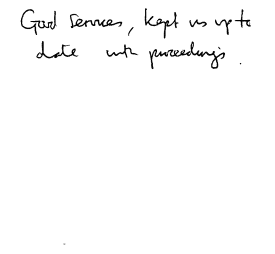 Good services, kept us up to
date with proceedings.